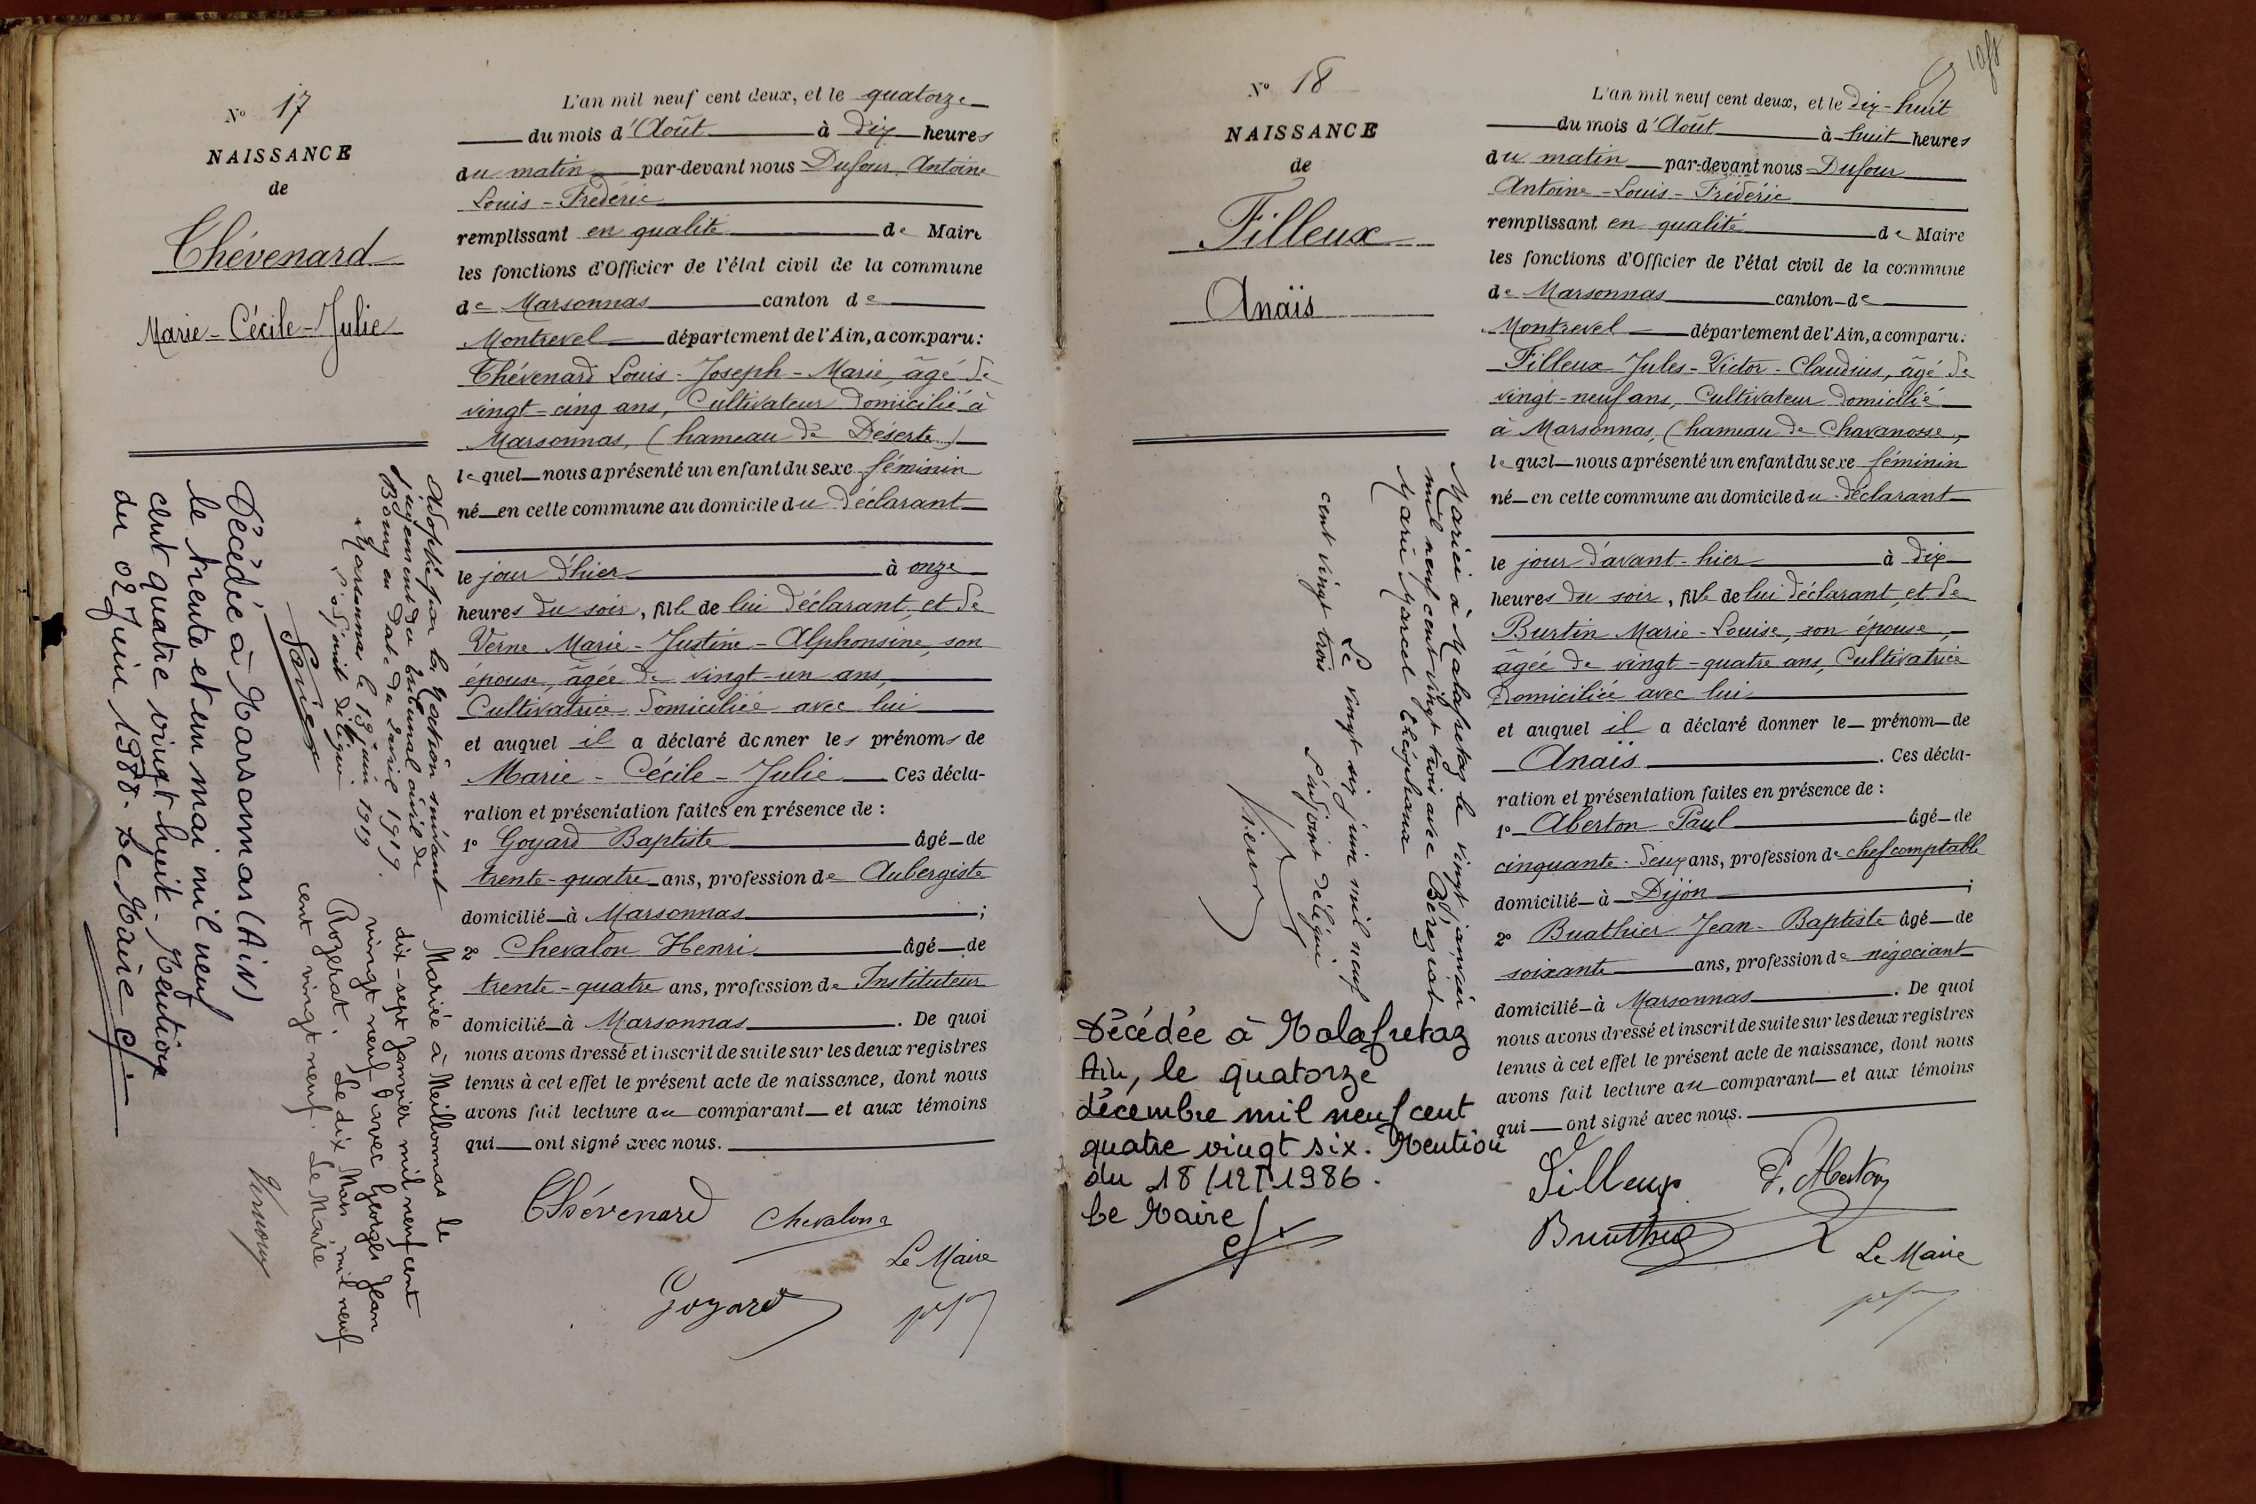 N° 17
NAISSANCE
de
Thévenard
Marie-Cécile-Julie
L'an mil neuf cent deux, et le quatorze
du mois d'Août à dix heures
du matin par-devant nous Dufour Antoine
Louis-Frédéric
remplissant en qualité de Maire
les fonctions d'Officier de l'état civil de la commune
de Marsonnas canton de
Montrevel département de l'Ain, a comparu:
Thévenard Louis-Joseph-Marie, âgé de
vingt-cinq ans, Cultivateur domicilié à
Marsonnas, (hameau de Déserte)
lequel nous a présenté un enfant du sexe féminin
né en cette commune au domicile du déclarant
le jour d'hier à onze
heures du soir, fille de lui déclarant, et de
Verne Marie-Justine-Alphonsine, son
épouse, âgée de vingt-un ans,
Cultivatrice domiciliée avec lui
et auquel il a déclaré donner les prénoms de
Marie-Cécile-Julie Ces décla-
ration et présentation faites en présence de :
1° Goyard Baptiste âgé de
trente-quatre ans, profession de Aubergiste
domicilié à Marsonnas ;
2° Chevalon Henri âgé de
trente-quatre ans, profession de Instituteur
domicilié à Marsonnas . De quoi
nous avons dressé et inscrit de suite sur les deux registres
tenus à cet effet le présent acte de naissance, dont nous
avons fait lecture au comparant et aux témoins
qui ont signé avec nous.
Thévenard Chevalon
Le Maire
Goyard
Adoptée par la Nation suivant
jugement du tribunal civil de
Bourg en date du 2 avril 1919.
Marsonnas le 13 juin 1919
L'adjoint délégué
Mariée à Meillonnas le
dix-sept Janvier mil neuf cent
vingt neuf avec Georges Jean
Rozerat. Le dix Mars mil neuf
cent vingt neuf. Le Maire
Décédée à Marsonnas (Ain)
le trente et un mai mil neuf
cent quatre vingt huit. Mention
du 02 Juin 1988. Le Maire
N° 18
NAISSANCE
de
Filleux
Anaïs
L'an mil neuf cent deux, et le dix-huit
du mois d'Août à huit heures
du matin par-devant nous Dufour
Antoine-Louis-Frédéric
remplissant en qualité de Maire
les fonctions d'Officier de l'état civil de la commune
de Marsonnas canton de
Montrevel département de l'Ain, a comparu:
Filleux Jules-Victor-Claudius, âgé de
vingt-neuf ans, Cultivateur domicilié
à Marsonnas, (hameau de Chavanosse,
lequel nous a présenté un enfant du sexe féminin
né en cette commune au domicile du déclarant
le jour d'avant-hier à dix
heures du soir, fille de lui déclarant, et de
Burtin Marie-Louise, son épouse,
âgée de vingt-quatre ans, Cultivatrice
domiciliée avec lui
et auquel il a déclaré donner le prénom de
Anaïs . Ces décla-
ration et présentation faites en présence de :
1° Aberton Paul âgé de
cinquante-deux ans, profession de chef comptable
domicilié à Dijon ;
2° Buathier Jean-Baptiste âgé de
soixante ans, profession de négociant
domicilié à Marsonnas . De quoi
nous avons dressé et inscrit de suite sur les deux registres
tenus à cet effet le présent acte de naissance, dont nous
avons fait lecture au comparant et aux témoins
qui ont signé avec nous.
Filleux P. Aberton
Buathier
Le Maire
Mariée à Malafretaz le vingt janvier
mil neuf cent vingt trois avec Béréziat
Marie Marcel Théophane
Le vingt six juin mil neuf
cent vingt trois L'adjoint délégué
Décédée à Malafretaz
Ain, le quatorze
décembre mil neuf cent
quatre vingt six. Mention
du 18/12/1986.
Le Maire